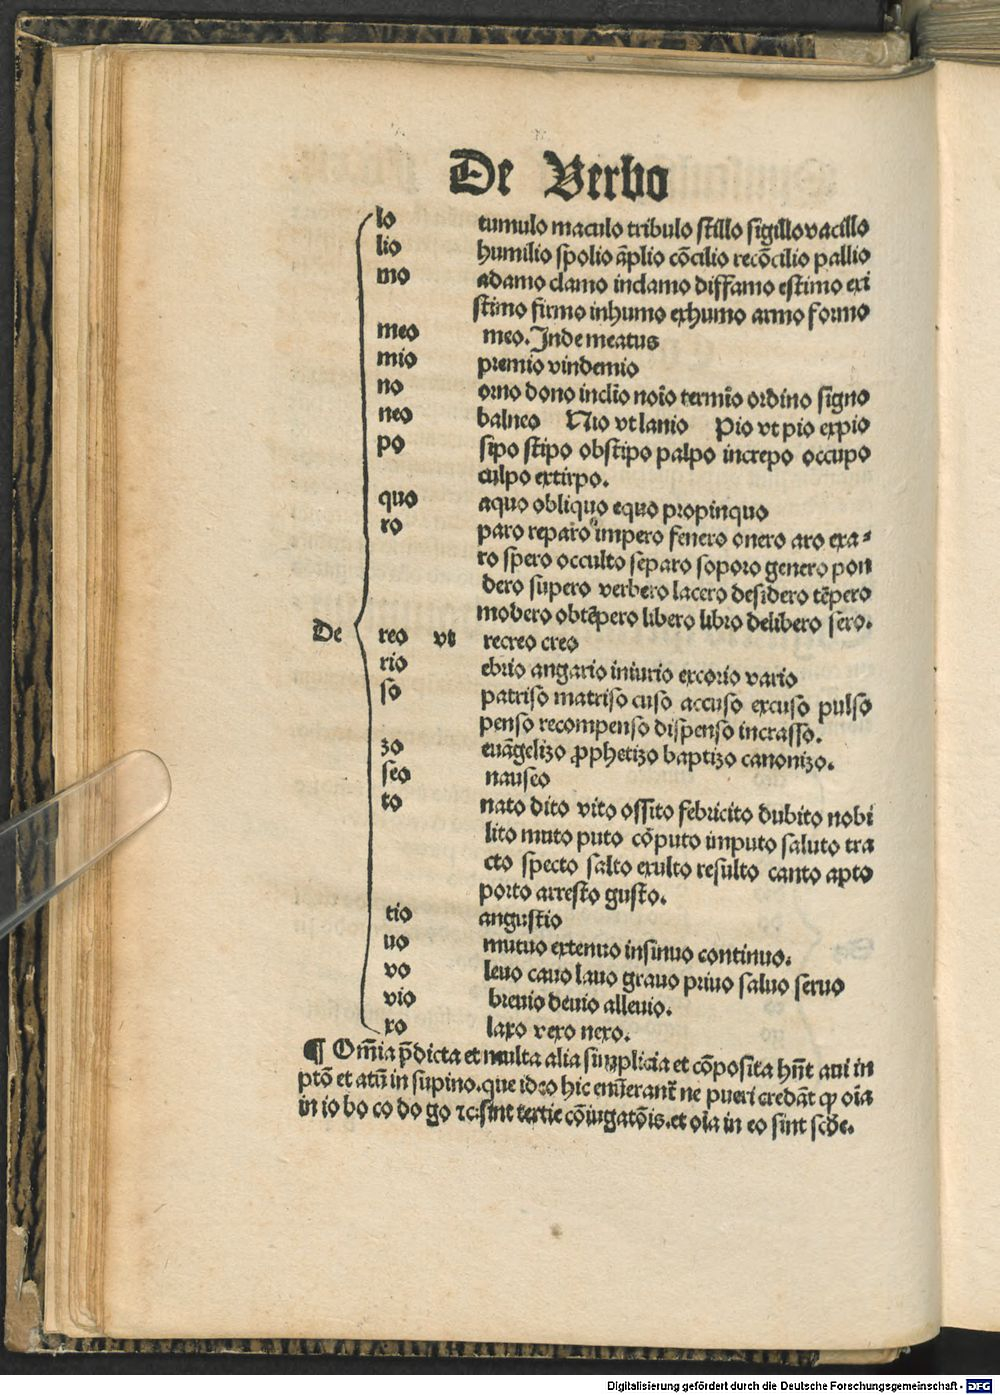 De Verbo
lo tumulo maculo tribulo stillo sigillo vacillo
lio humilio spolio āplio cōcilio recōcilio pallio
mo adamo clamo inclamo diffamo estimo exi
stimo firmo inhumo exhumo armo formo
meo meo. Inde meatus
mio premio vindemio
no orno dono inclīo noīo termīo ordino signo
neo balneo Nio vt lanio Pio vt pio expio
po sipo stipo obstipo palpo increpo occupo
culpo extirpo.
quo aquo obliquo equo propinquo
ro paro reparo impero fenero onero aro exa⸗
ro spero occulto separo soporo genero pon
dero supero verbero lacero desidero tēpero
modero obtēpero libero libro delibero sero.
De reo vt recreo creo
rio ebrio angario iniurio excorio vario
so patriso matriso cuso accuso excuso pulso
penso recompenso dispenso incrasso.
zo euāgelizo ꝓphetizo baptizo canonizo.
seo nauseo
to nato dito vito ossito febricito dubito nobi
lito muto puto cōputo imputo saluto tra
cto specto salto exulto resulto canto apto
porto arresto gusto.
tio angustio
uo mutuo extenuo insinuo continuo.
vo leuo cauo lauo grauo priuo saluo seruo
vio breuio deuio alleuio.
xo laxo vexo nexo.
¶ Om̄ia p̄dicta et multa alia simplicia et cōposita hn̄t aui in
ptō et atū in supino. que ideo hic enūerant᷑ ne pueri credāt ꝙ oīa
in io bo co do go ⁊c: sint tertie cōiugatōis. et oīa in eo sint scđe.
Digitalisierung gefördert durch die Deutsche Forschungsgemeinschaft - DFG